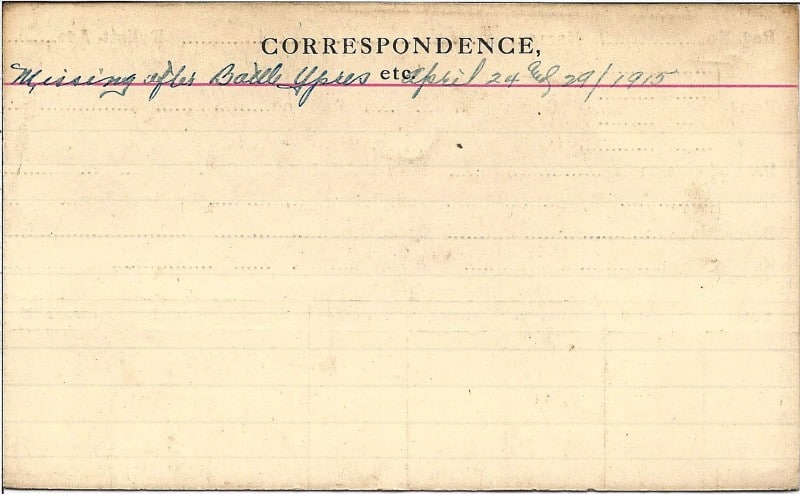 CORRESPONDENCE,
etc.
Missing after Battle Ypres April 24 29/1915